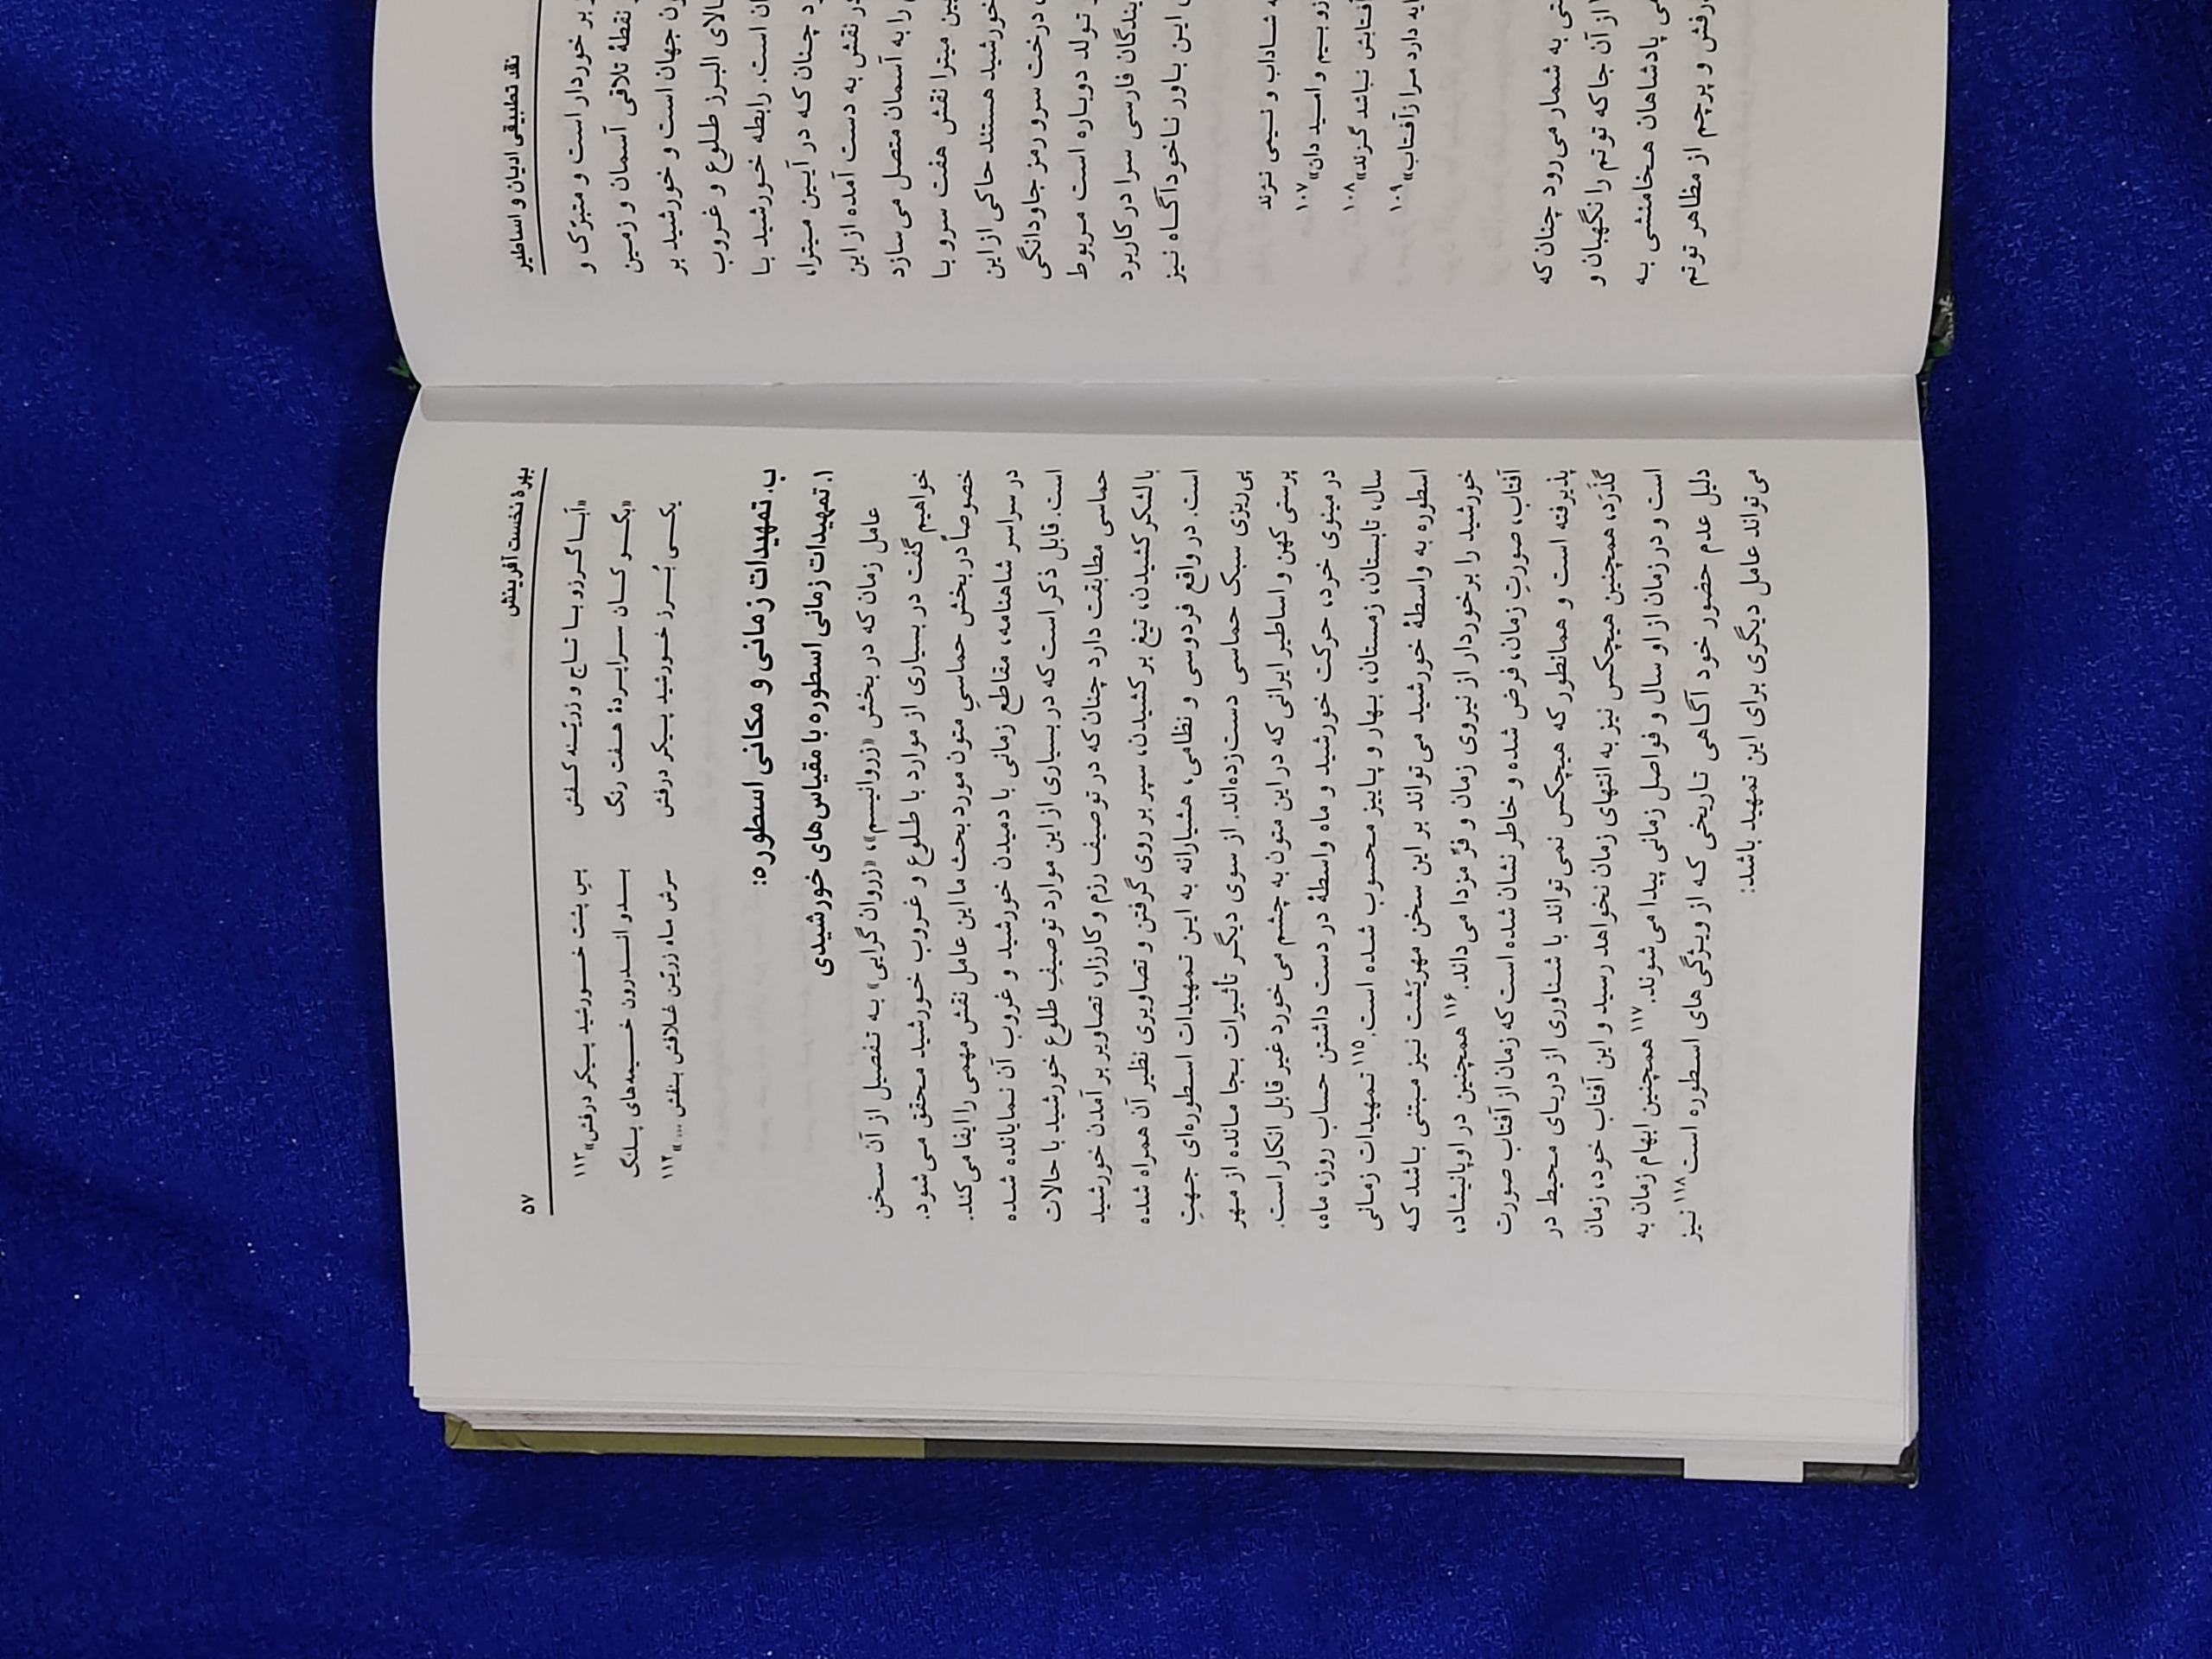 نقد تطبیقی ادیان و اساطیر
بر خوردار است و متبرّک و
نقطهٔ تلاقی آسمان و زمین
جهان است و خورشید بر
البرز طلوع و غروب
است. رابطه خورشید با
چنان که در آیین میترا،
نقش به دست آمده از این
را به آسمان متصل می‌سازد
میترا نقش هفت سرو با
خورشید هستند حاکی از این
درخت سرو رمز جاودانگی
تولد دوباره است مربوط
فارسی سرا در کاربرد
این باور ناخودآگاه نیز
شاداب و نیمی نژند
بیم و امید دان» ۱۰۷
آفتابش نباشد گزند» ۱۰۸
دارد مرا ز آفتاب» ۱۰۹
به شمار می‌رود چنان که
از آن جا که توتم را نگهبان و
پادشاهان هخامنشی به
و پرچم از مظاهر توتم
بهرهٔ نخست آفرینش ۵۷
«اَبا گرز و با تاج و زرّینه کفش پس پشت خورشید پیکر درفش» ۱۱۳
«بگو کان سراپردهٔ هفت رنگ بدو اندرون خیمه‌های پلنگ
یکی بُرز خورشید پیکر درفش سرش ماه زرّین غلافش بنفش ...» ۱۱۴
ب. تمهیدات زمانی و مکانی اسطوره:
۱. تمهیدات زمانی اسطوره با مقیاس‌های خورشیدی
عامل زمان که در بخش «زروانیسم»، «زروان گرایی» به تفصیل از آن سخن
خواهیم گفت در بسیاری از موارد با طلوع و غروب خورشید محقق می‌شود.
خصوصاً در بخش حماسیِ متون مورد بحث ما این عامل نقش مهمی را ایفا می‌کند.
در سراسر شاهنامه، مقاطع زمانی با دمیدن خورشید و غروب آن نمایانده شده
است. قابل ذکر است که در بسیاری از این موارد توصیفِ طلوع خورشید با حالات
حماسی مطابقت دارد چنان که در توصیف رزم و کارزار، تصاویر بر آمدن خورشید
با لشکر کشیدن، تیغ بر کشیدن، سپر بر روی گرفتن و تصاویری نظیر آن همراه شده
است. در واقع فردوسی و نظامی، هشیارانه به این تمهیدات اسطوره‌ای جهتِ
پی‌ریزی سبک حماسی دست زده‌اند. از سوی دیگر تأثیرات بجا مانده از مهر
پرستی کهن و اساطیر ایرانی که در این متون به چشم می‌خورد غیر قابل انکار است.
در مینوی خرد، حرکت خورشید و ماه واسطهٔ در دست داشتن حساب روز، ماه،
سال، تابستان، زمستان، بهار و پاییز محسوب شده است.۱۱۵ تمهیدات زمانی
اسطوره به واسطهٔ خورشید می‌تواند بر این سخن مهریَشت نیز مبتنی باشد که
خورشید را برخوردار از نیروی زمان و فرّ مزدا می‌داند.۱۱۶ همچنین در اوپانیشاد،
آفتاب، صورتِ زمان، فرض شده و خاطر نشان شده است که زمان از آفتاب صورت
پذیرفته است و همانطور که هیچکس نمی‌تواند با شناوری از دریای محیط در
گذَرَد، همچنین هیچکس نیز به انتهای زمان نخواهد رسید و این آفتاب خود، زمان
است و در زمان از او سال و فواصل زمانی پیدا می‌شوند.۱۱۷ همچنین ابهام زمان به
دلیل عدم حضور خود آگاهی تاریخی که از ویژگی‌های اسطوره است۱۱۸ نیز
می‌تواند عامل دیگری برای این تمهید باشد: